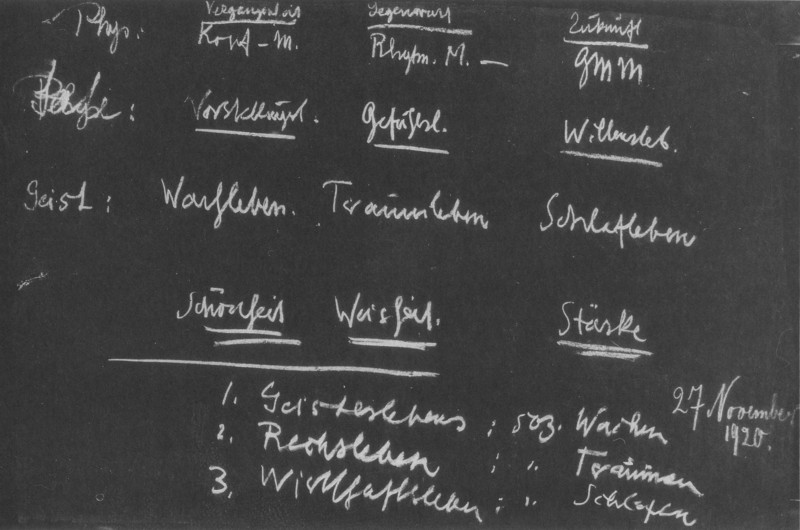 Vergangenheit Gegenwart Zukunft
Phys.: Kopf-M. Rhytm. M. — GMM
: Vorstellungsl. Gefühlsl. Willensleb.
Geist: Wachleben. Traumleben Schlafleben
Schönheit Weisheit. Stärke
27 November 1920.
1. Geisteslebens ; soz. Wachen
2. Rechtsleben ; " Träumen
3. Wirtschaftsleben ; " Schlafen